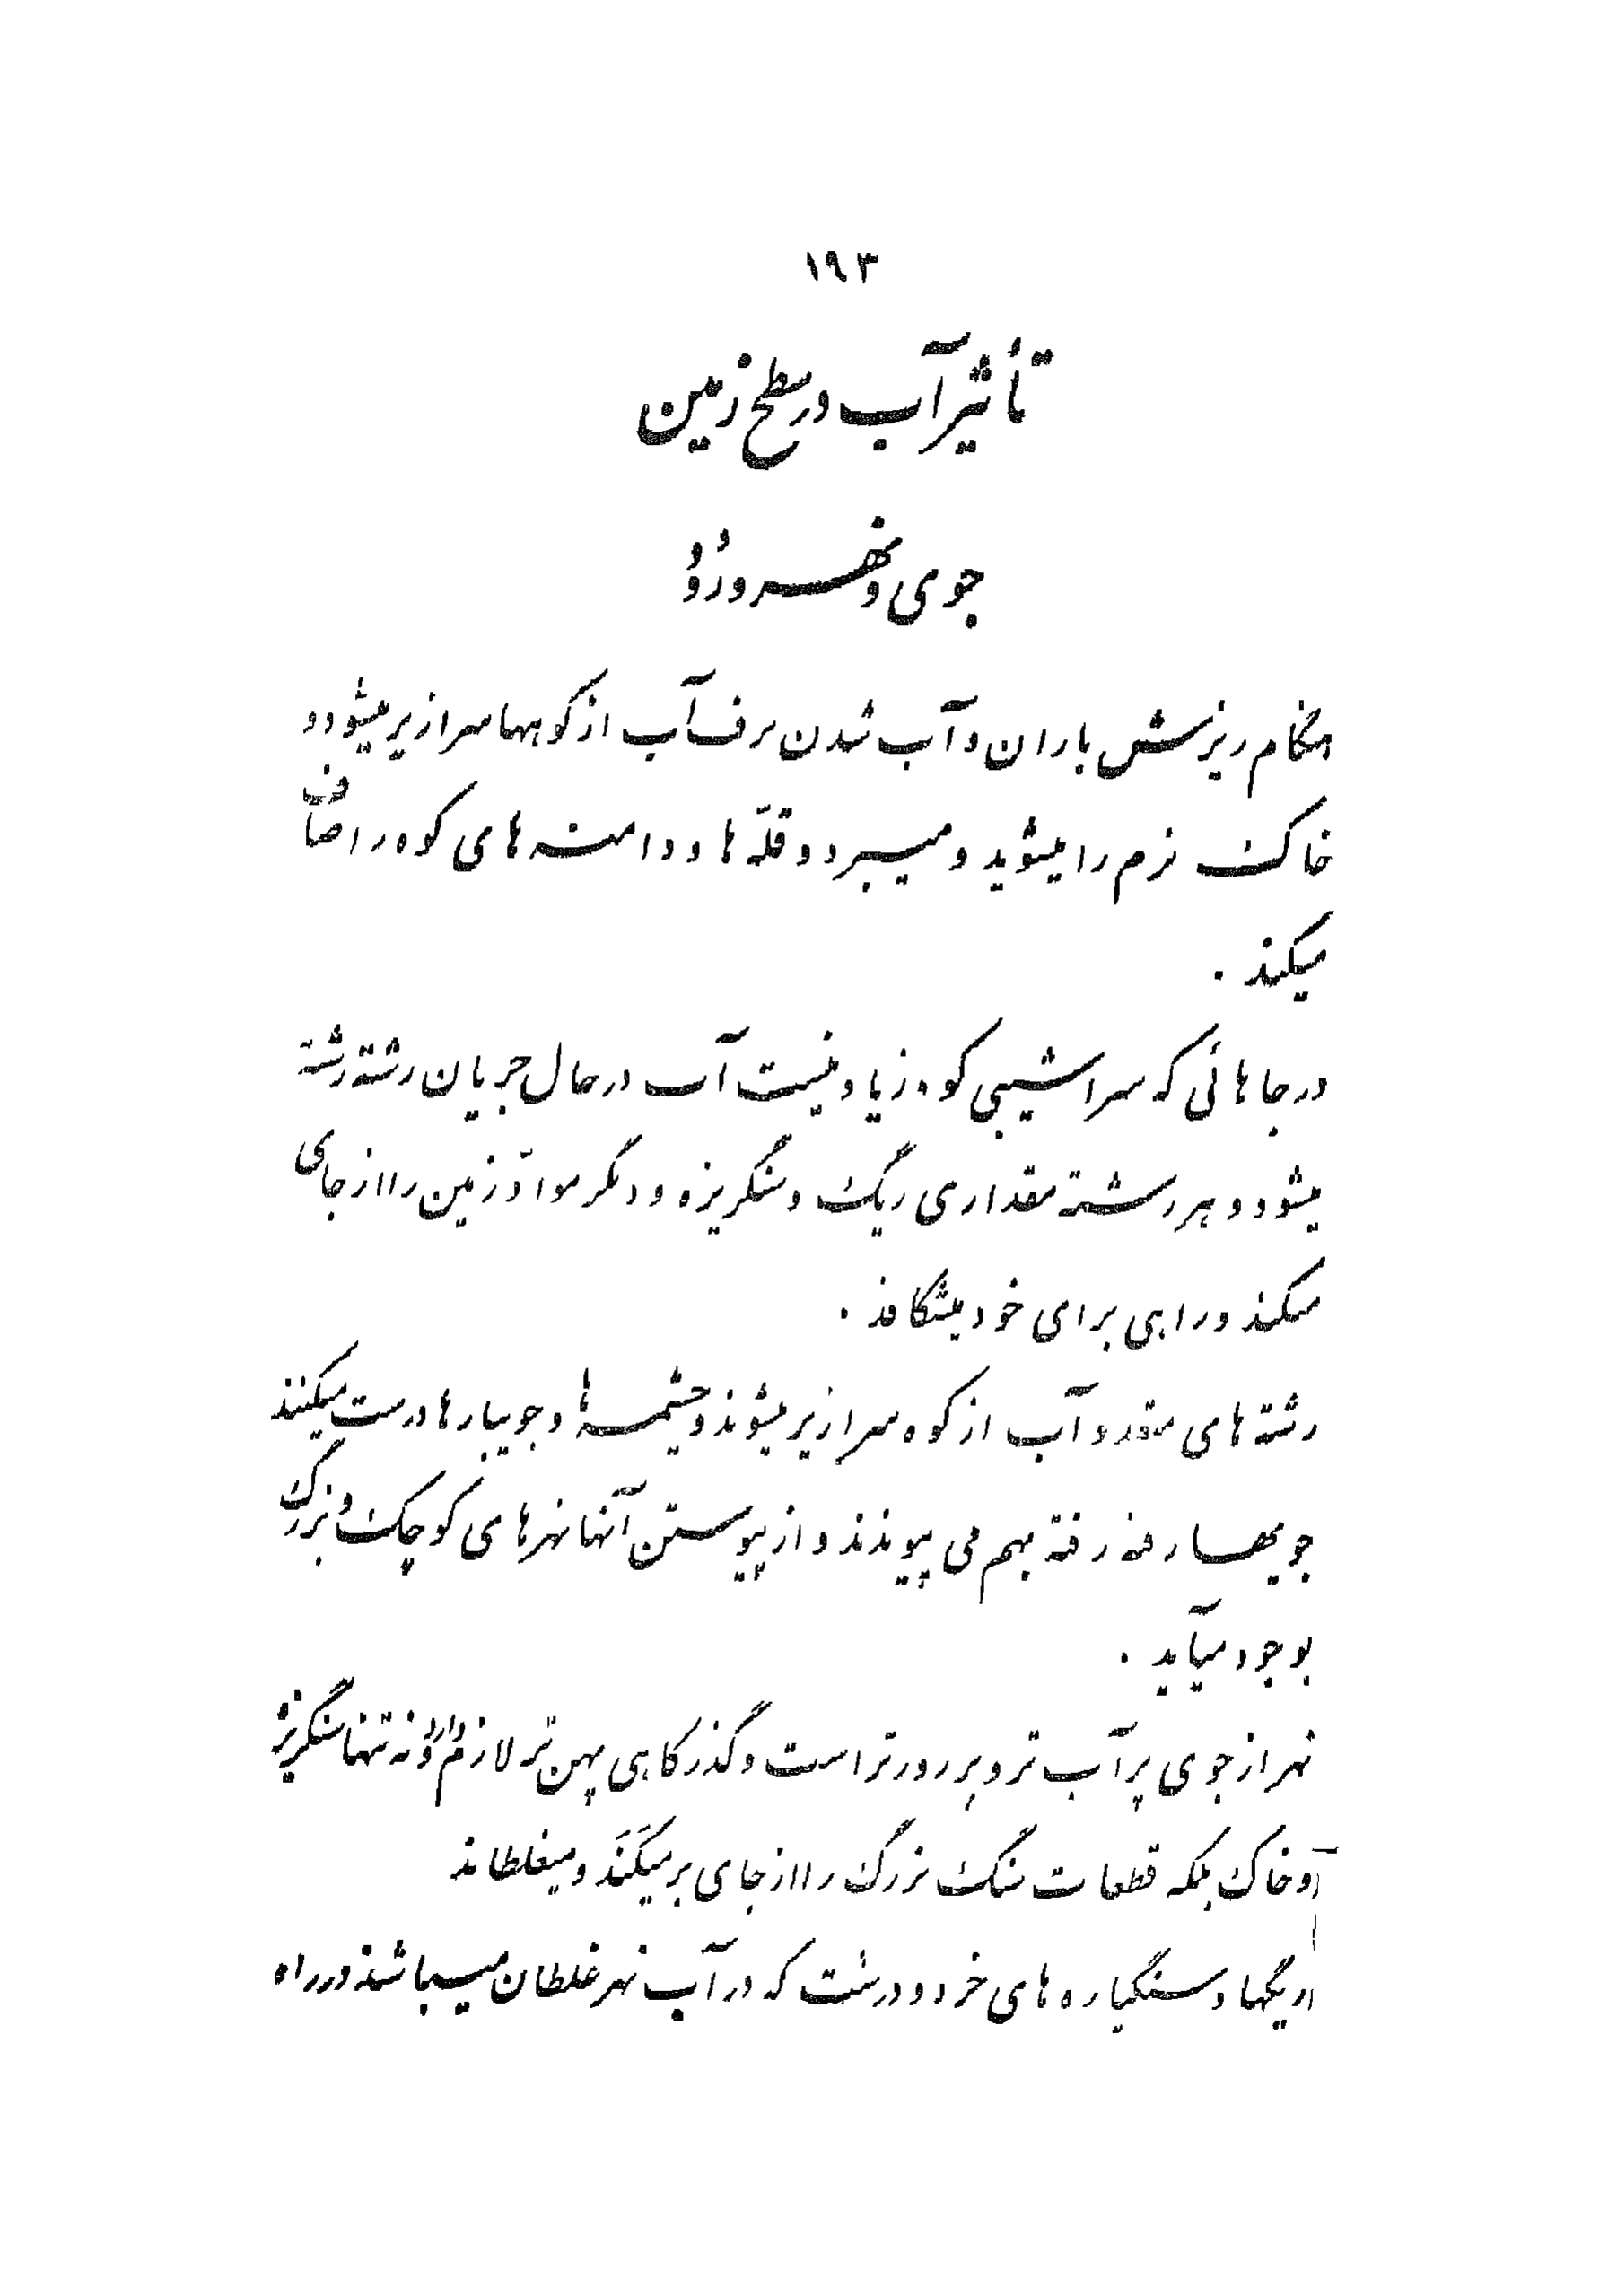 ١٩٣
تأثیر آب در سطح زمین
جوی و نهر و رُوُد
هنگام ریزش باران و آب شدن برف آب از کوهها سرازیر میشود و
خاک نرم را میشوید و میبرد و قلّه ها و دامنه های کوه را صاف
میکند .
در جاهائی که سراشیبی کوه زیاد نیست آب در حال جریان رشته رشته
میشود و هر رشته مقداری ریگ و سنگریزه و دیگر موادّ زمین را از جای
میکند و راهی برای خود میشکافد .
رشته های متعدد آب از کوه سرازیر میشوند و چشمه ها و جویبارها درست میکنند
جویها رفته رفته بهم می پیوندند و از پیوستن آنها نهرهای کوچک و بزرگ
بوجود میآید .
نهر از جوی پر آب تر و پر زورتر است و گذرگاهی پهن تر لازم دارد و نه تنها سنگریزه
و خاک بلکه قطعات سنگ بزرگ را از جای بر میکَنَد و میغلطاند
ریگها و سنگپاره های خرد و درشت که در آب نهر غلطان میباشند در راه